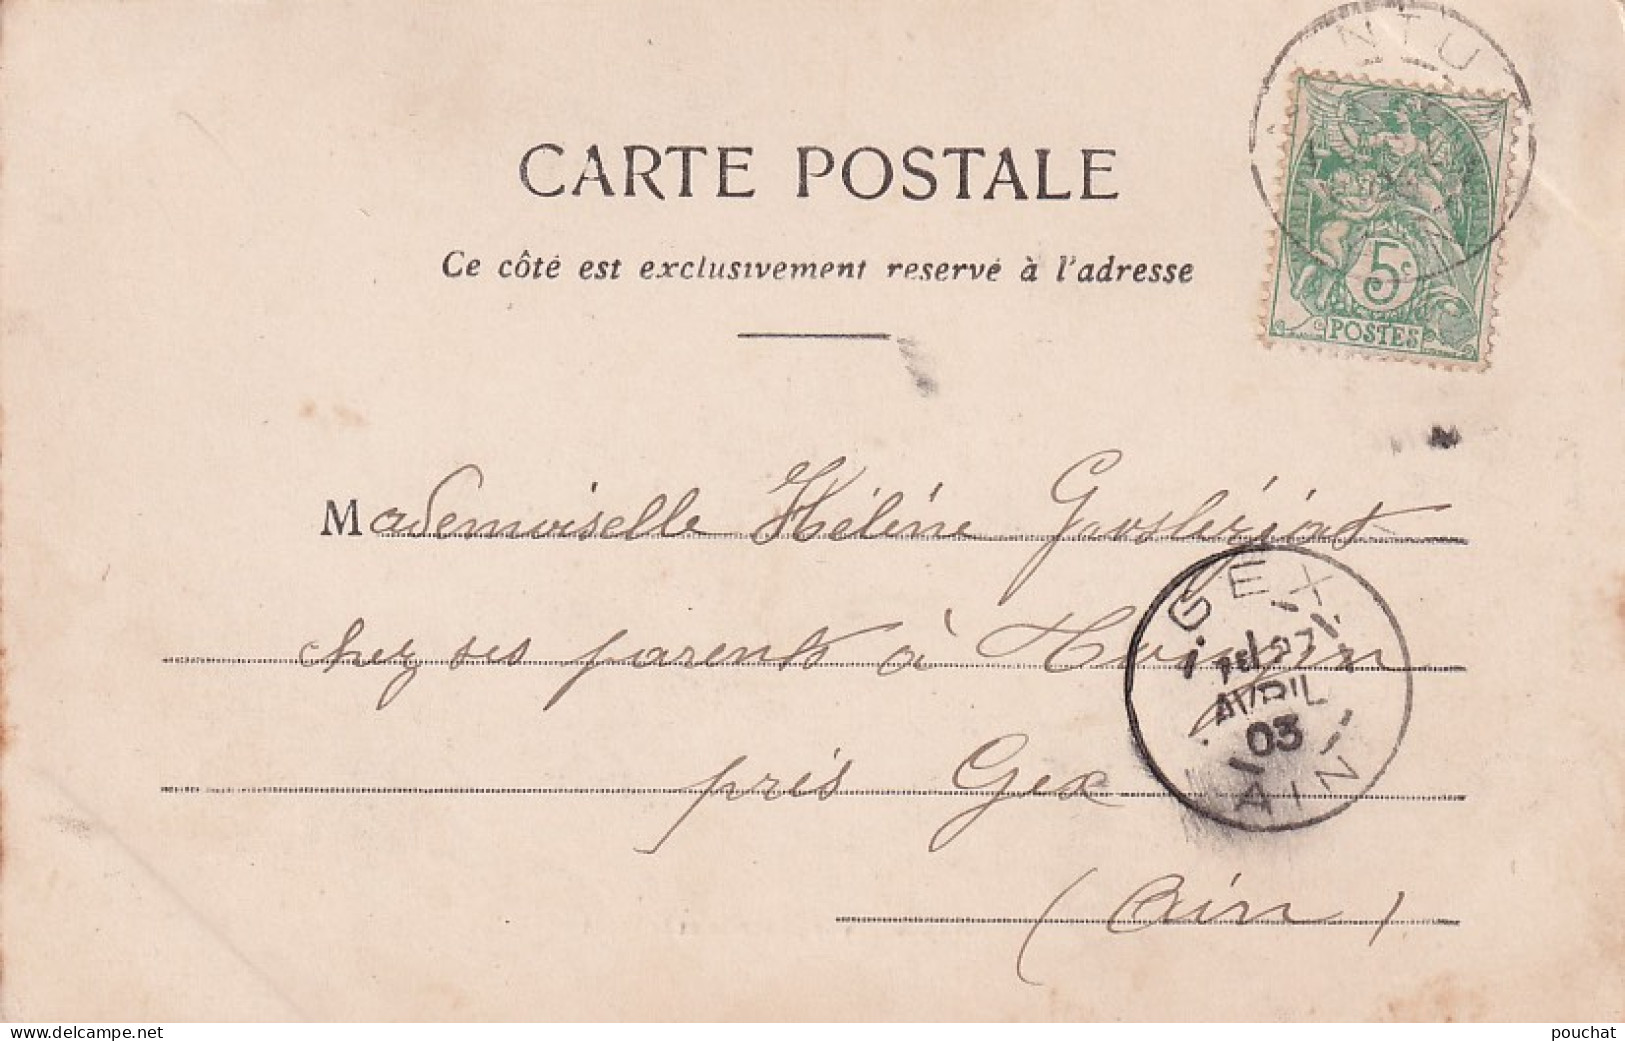 NTU
CARTE POSTALE
Ce côté est exclusivement reservé à l'adresse
5c
POSTES
Mademoiselle Hélène
chez ses parents à
GEX
27
AVRIL
03
AIN
près Gex
(Ain)
www.delcampe.net
pouchat